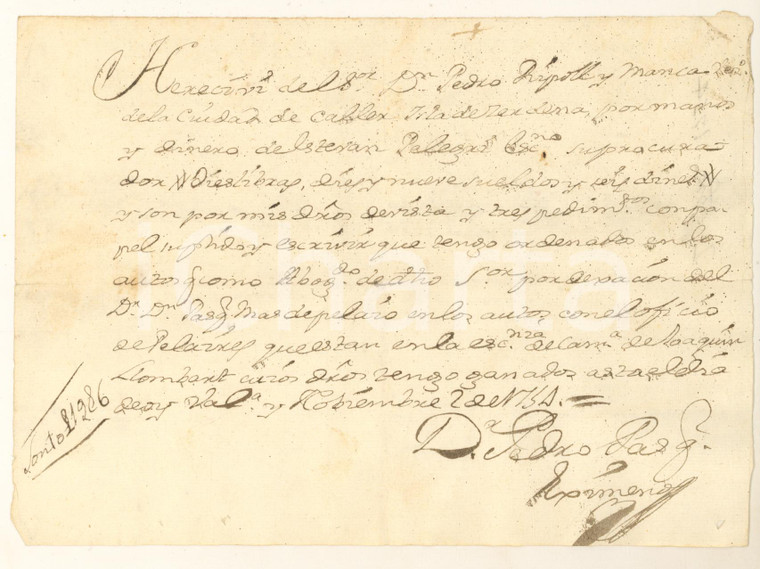 He recivi de el Sor. Dn. Pedro Ripoll y Manca
de la Ciudad de Caller Isla de Zerdena, por manos
y dinero de Estevan Pelegri Esno. su procura
dor Dies libras, dies y nueve sueldos y seis dines.
y son por mis dros de vista y tres pedimtos. con pa
pel suplido y escrivir que tengo ordenados en los
autos q como Abogdo. de dho Sor. por de ración del
Dr. Dn. Pasql. Mas de pelaio en los autos con el oficio
de Pelaires que estan en la escnia. de Cama. de Joaquin
Llombart cuios dros tengo ganados asta el dia
de oy Vala. y Nobiembre 2 de 1754.
Dr. Pedro Pasql.
Ximeno